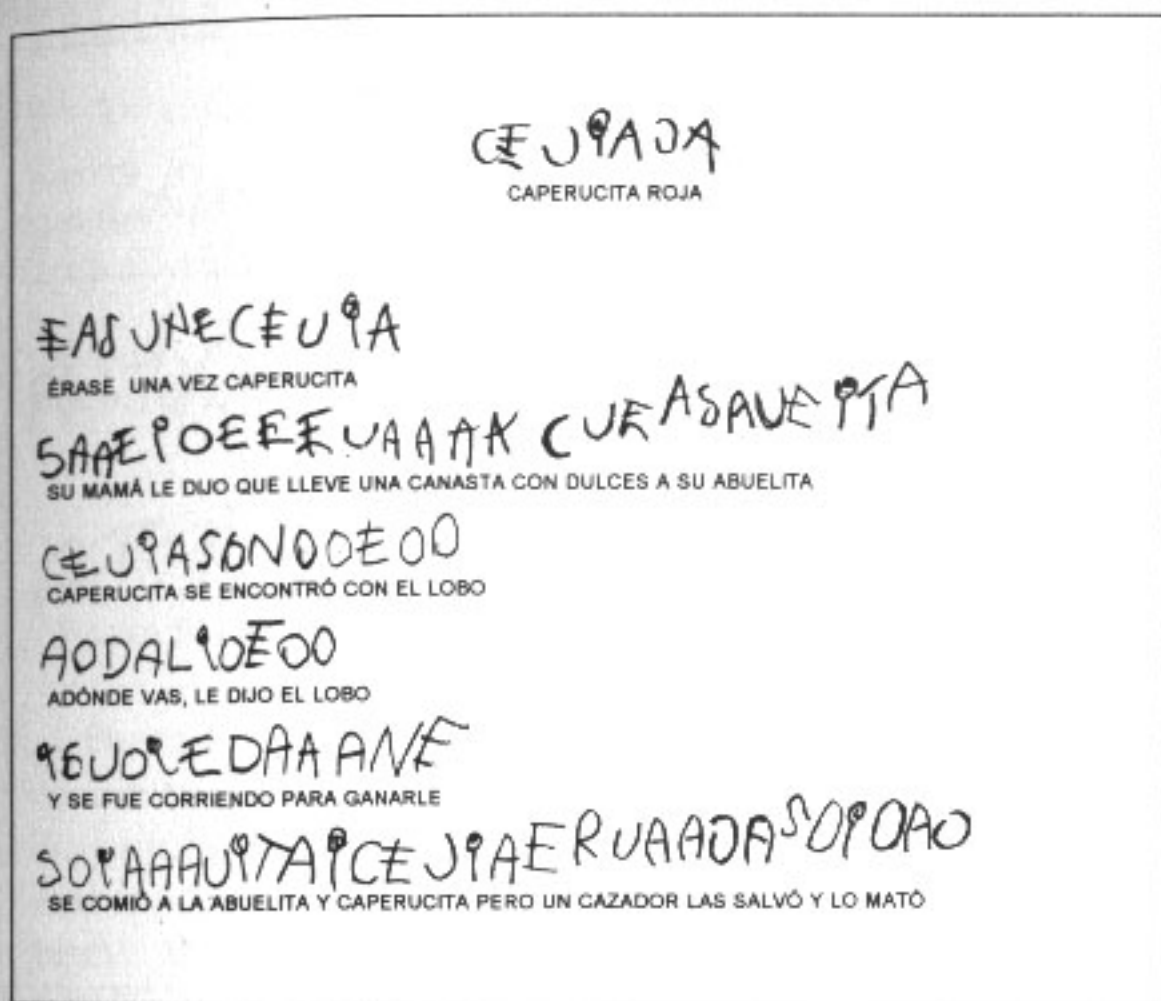 CEUiAJA
CAPERUCITA ROJA
EASUNECEUiA
ÉRASE UNA VEZ CAPERUCITA
SAAEiOEEEUAAAK CUEASAUEiTA
SU MAMÁ LE DIJO QUE LLEVE UNA CANASTA CON DULCES A SU ABUELITA
CEUiASONOOEOO
CAPERUCITA SE ENCONTRÓ CON EL LOBO
AODALiOEOO
ADÓNDE VAS, LE DIJO EL LOBO
iEUOiEDAAANE
Y SE FUE CORRIENDO PARA GANARLE
SOiAAAUiTAiCEUiAERUAADASOiOAO
SE COMIÓ A LA ABUELITA Y CAPERUCITA PERO UN CAZADOR LAS SALVÓ Y LO MATÓ